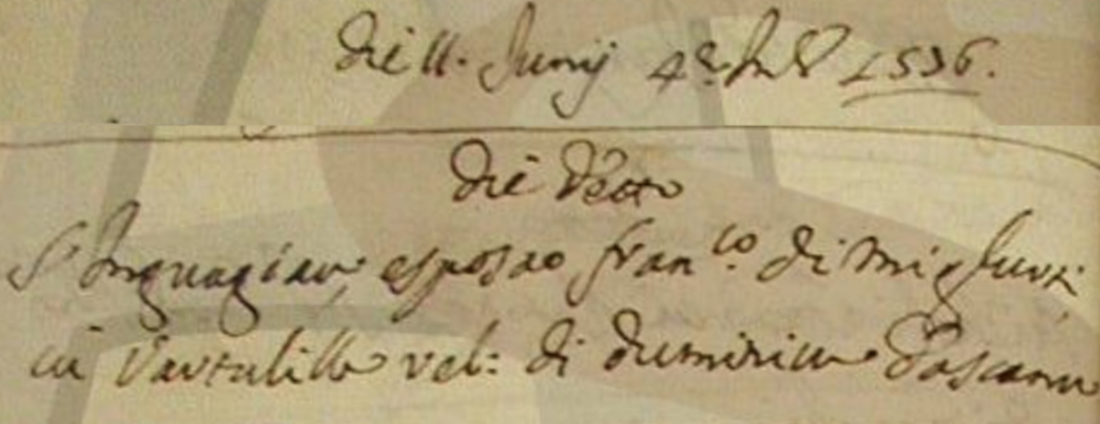 Die 11. Junij 4e Ind. 1536.
die detto
S'Inguagiau, esposao Franco. di migluri
cu Vartulilla rel: di duminicu Toscanu